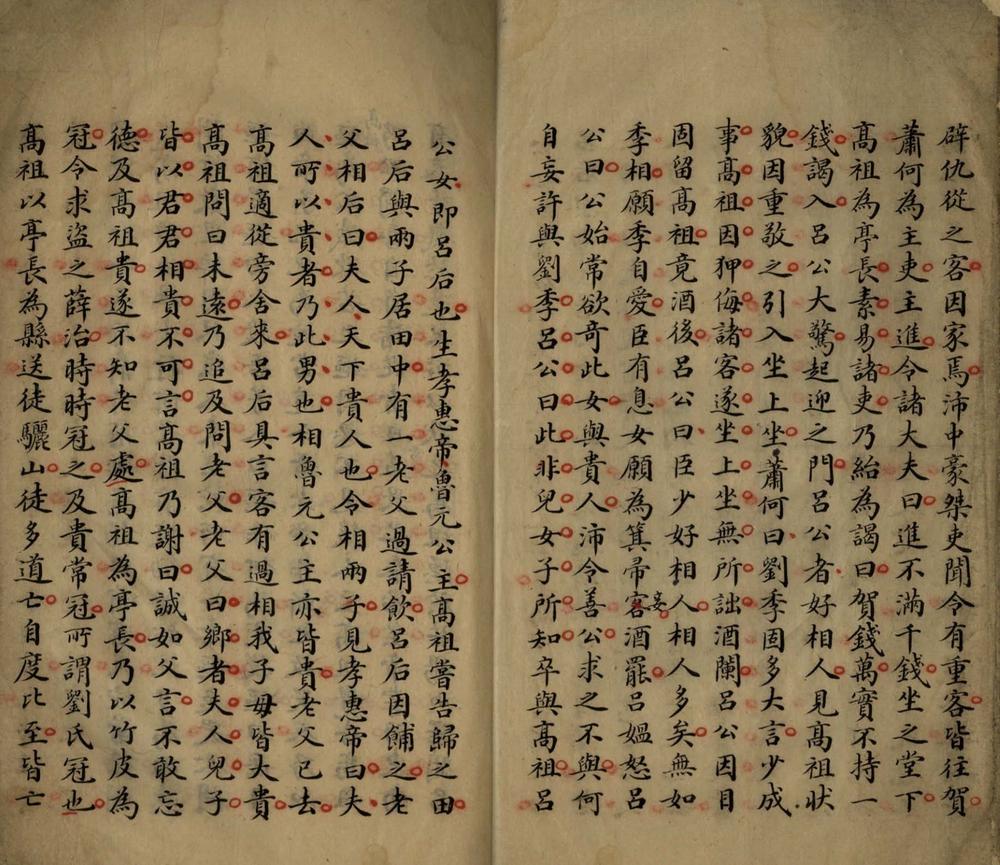 辟仇從之客因家焉沛中豪桀吏聞令有重客皆往賀
蕭何為主吏主進令諸大夫曰進不滿千錢坐之堂下
髙祖為亭長素易諸吏乃紿為謁曰賀錢萬實不持一
錢謁入呂公大驚起迎之門呂公者好相人見髙祖狀
貌因重敬之引入坐上坐蕭何曰劉季固多大言少成
事髙祖因狎侮諸客遂坐上坐無所詘酒闌呂公因目
固留髙祖竟酒後呂公曰臣少好相人相人多矣無如
季相願季自愛臣有息女願為箕帚妾酒罷呂媼怒呂
公曰公始常欲奇此女與貴人沛令善公求之不與何
自妄許與劉季呂公曰此非兒女子所知卒與髙祖呂
公女即呂后也生孝惠帝魯元公主髙祖嘗告歸之田
呂后與兩子居田中有一老父過請飲呂后因餔之老
父相后曰夫人天下貴人也令相兩子見孝惠帝曰夫
人所以貴者乃此男也相魯元公主亦皆貴老父已去
髙祖適從旁舍來呂后具言客有過相我子母皆大貴
髙祖問曰未遠乃追及問老父老父曰鄉者夫人兒子
皆以君君相貴不可言髙祖乃謝曰誠如父言不敢忘
德及髙祖貴遂不知老父處髙祖為亭長乃以竹皮為
冠令求盜之薛治時時冠之及貴常冠所謂劉氏冠也
髙祖以亭長為縣送徒驪山徒多道亡自度比至皆亡